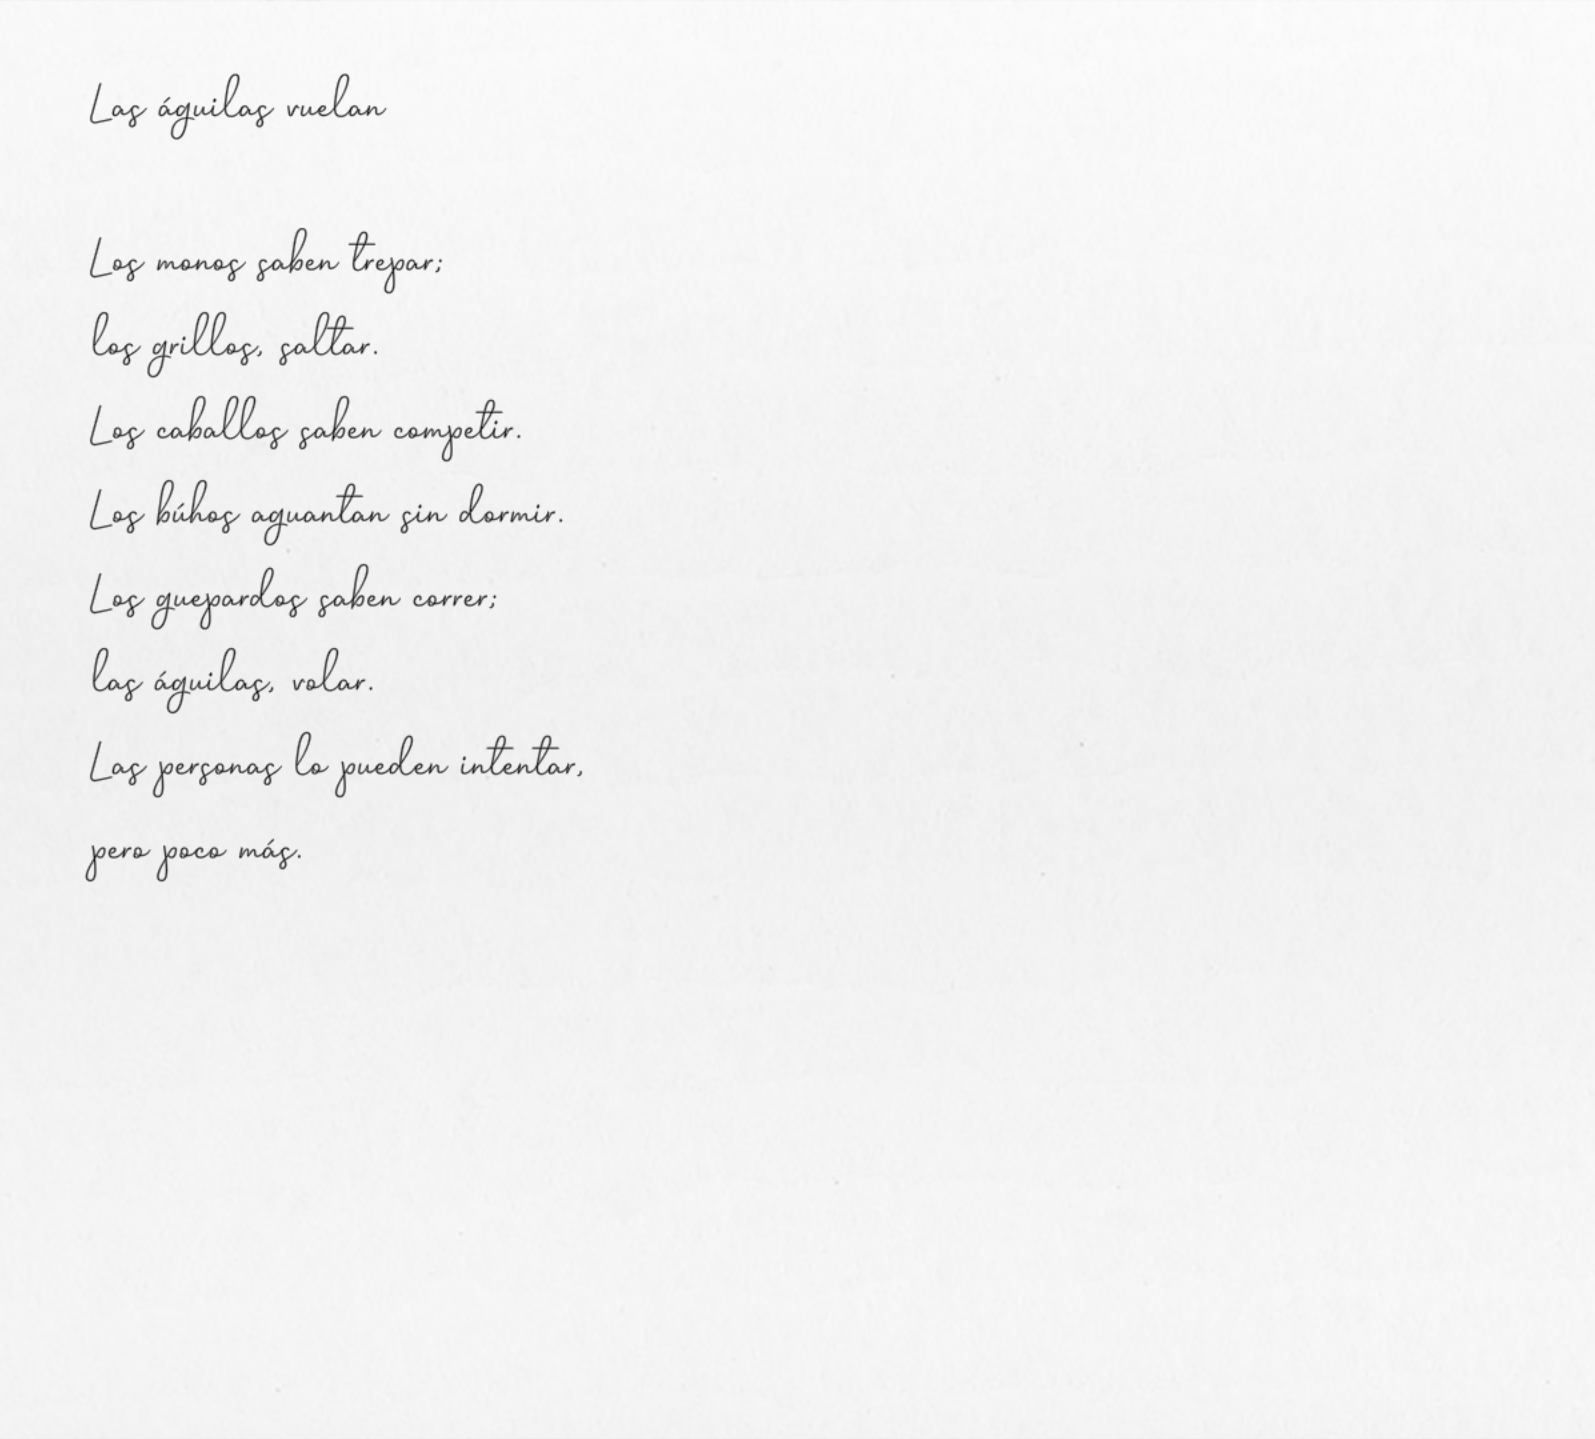 Las águilas vuelan
Los monos saben trepar;
los grillos, saltar.
Los caballos saben competir.
Los búhos aguantan sin dormir.
Los guepardos saben correr;
las águilas, volar.
Las personas lo pueden intentar,
pero poco más.